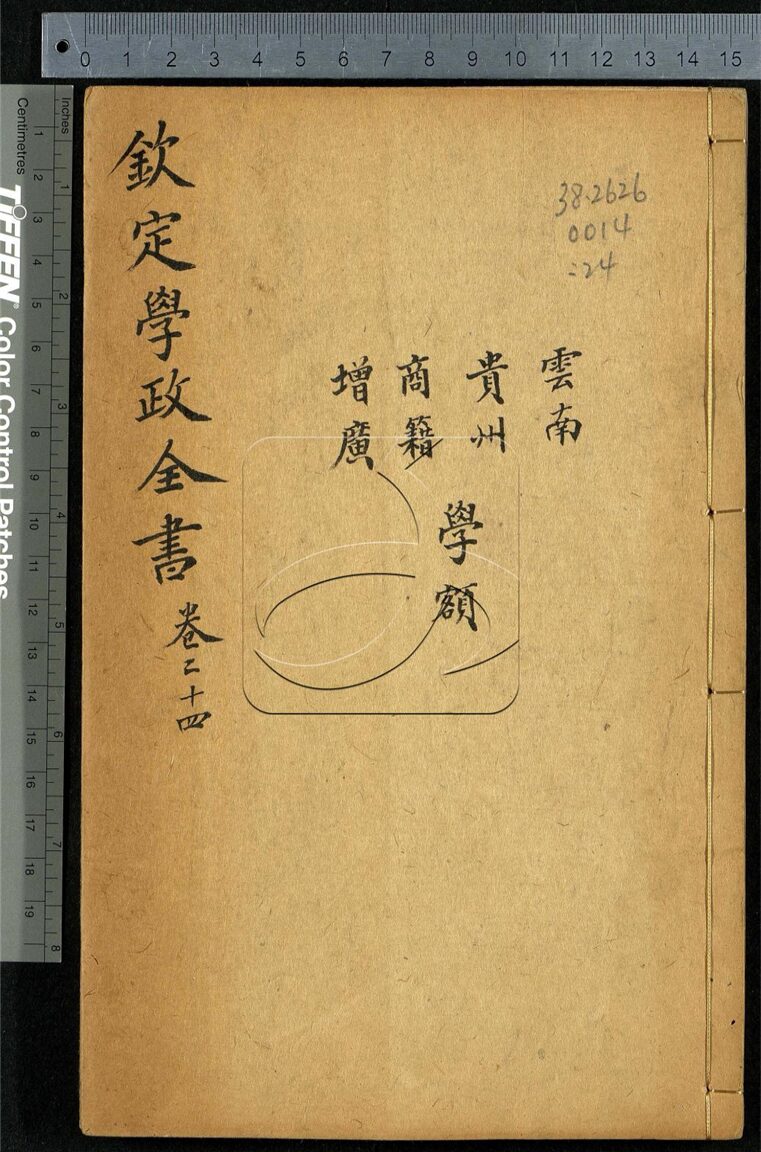 0 1 2 3 4 5 6 7 8 9 10 11 12 13 14 15
inches
Centimetres
1 2 3 4 5 6 7 8 9 10 11 12 13 14 15 16 17 18 19
1 2 3 4 5 6 7 8
TIFFEN® Color Control Patches
38.2626
0014
:24
雲南
貴州
商籍
增廣
學額
欽定學政全書卷二十四